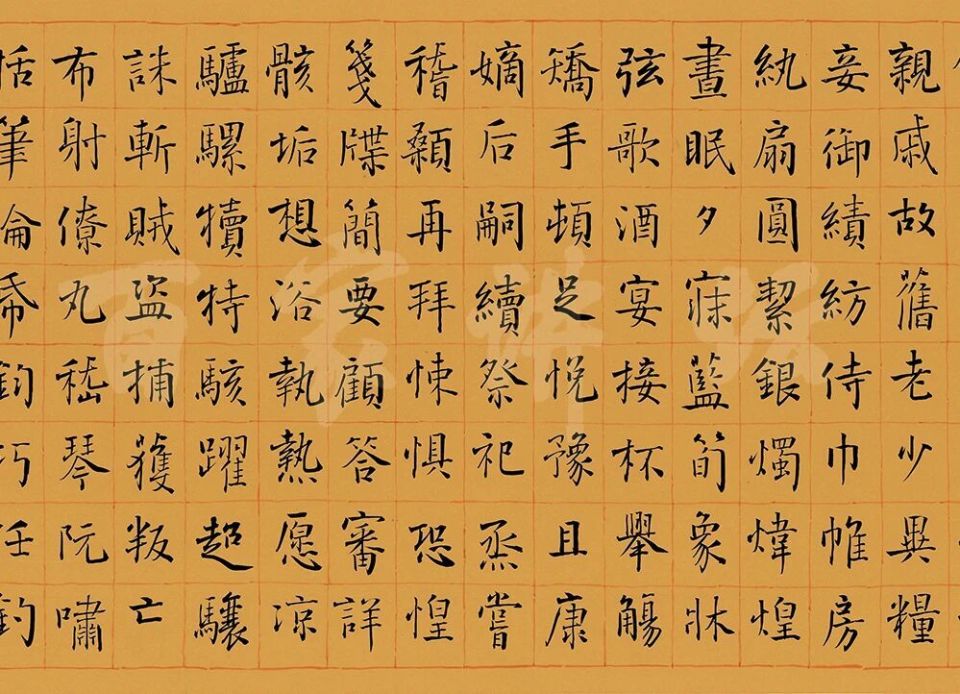 親戚故舊老少異糧
妾御績紡侍巾帷房
紈扇圓絜銀燭煒煌
晝眠夕寐藍筍象牀
弦歌酒宴接杯舉觴
矯手頓足悅豫且康
嫡后嗣續祭祀烝嘗
稽顙再拜悚懼恐惶
箋牒簡要顧答審詳
骸垢想浴執熱愿涼
驢騾犢特駭躍超驤
誅斬賊盜捕獲叛亡
布射僚丸嵇琴阮嘯
恬筆倫帋鈞巧任釣
百家讲坛